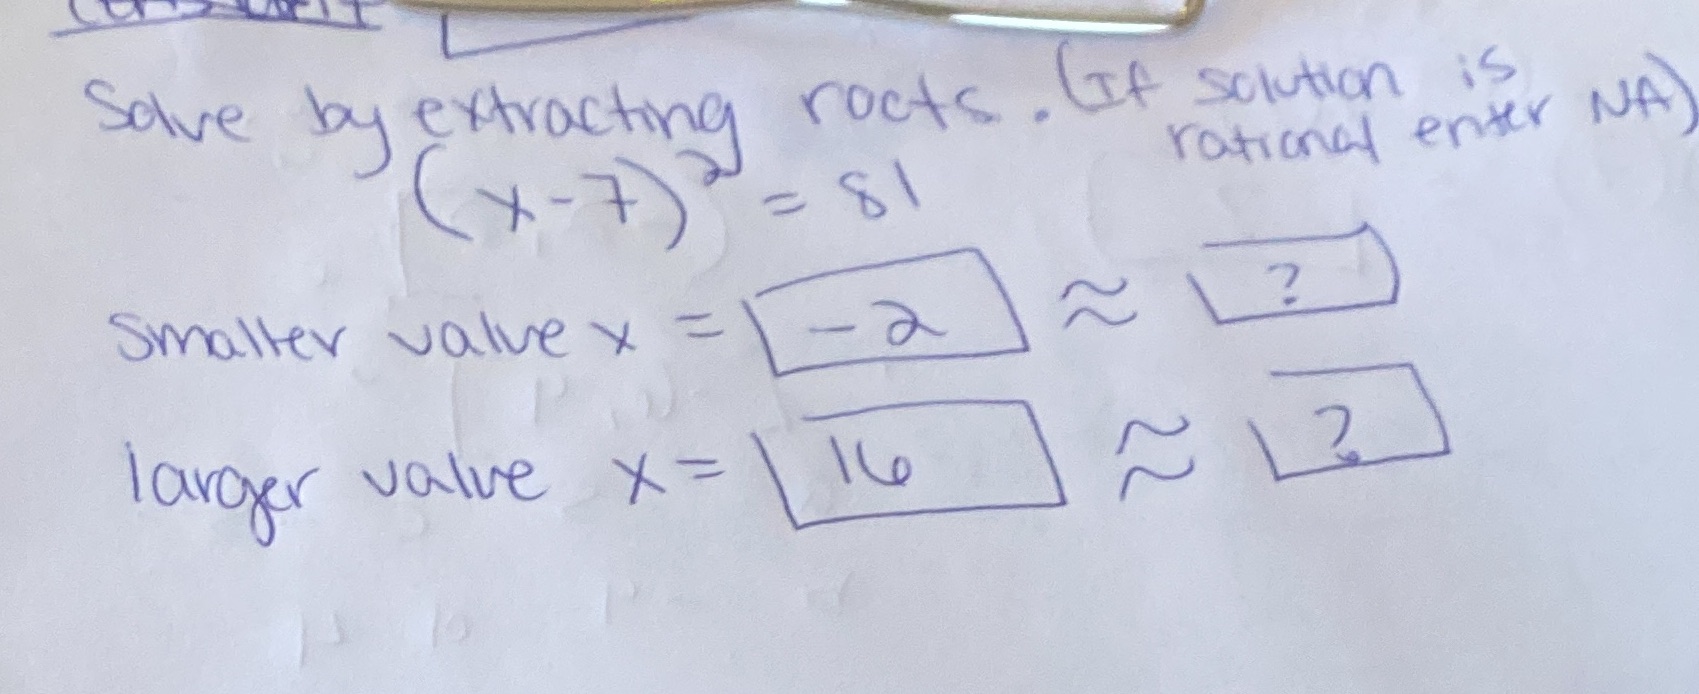 Solve by extracting roots. (If solution is
rational enter NA)
(x-7)² = 81
smaller value x = -2 ≈ ?
larger value x = 16 ≈ ?